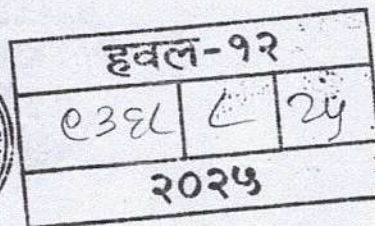 हवल-१२
९३६८ ८ २५
२०२५